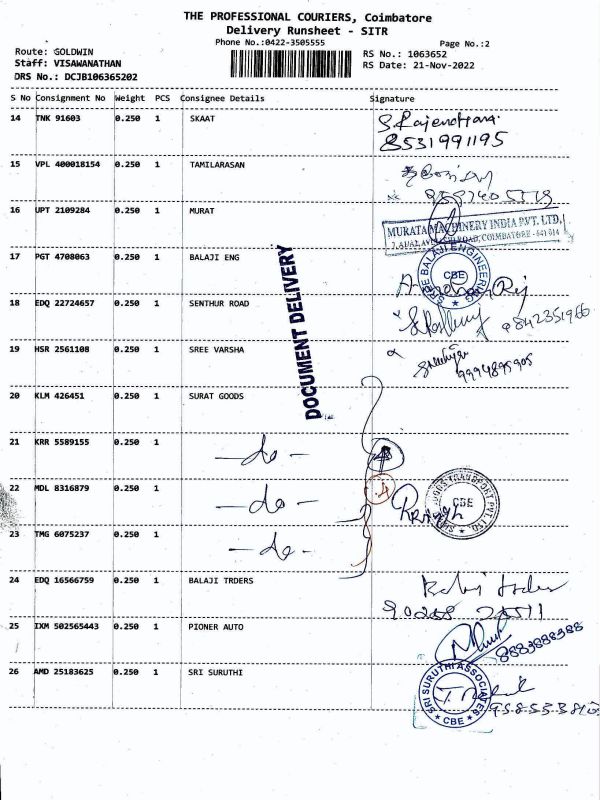 THE PROFESSIONAL COURIERS, Coimbatore
Delivery Runsheet - SITR
Phone No.:0422-3505555
Page No.:2
Route: GOLDWIN
RS No.: 1063652
Staff: VISAWANATHAN
RS Date: 21-Nov-2022
DRS No.: DCJB106365202
S No Consignment No Weight PCS Consignee Details Signature
14 TNK 91603 0.250 1 SKAAT
8531991195
15 VPL 400018154 0.250 1 TAMILARASAN
16 UPT 2109284 0.250 1 MURAT
MURATA MACHINERY INDIA PVT. LTD.
COIMBATORE - 641 014
17 PGT 4708063 0.250 1 BALAJI ENG
SREE BALAJI ENGINEERING
CBE
18 EDQ 22724657 0.250 1 SENTHUR ROAD
9842351966
19 HSR 2561108 0.250 1 SREE VARSHA
9994895905
DOCUMENT DELIVERY
20 KLM 426451 0.250 1 SURAT GOODS
21 KRR 5589155 0.250 1 - do -
22 MDL 8316879 0.250 1 - do -
14
CBE
23 TMG 6075237 0.250 1 - do -
24 EDQ 16566759 0.250 1 BALAJI TRDERS
25 IXM 502565443 0.250 1 PIONER AUTO
8883888388
26 AMD 25183625 0.250 1 SRI SURUTHI
SRI SURUTHI ASSOCIATES
CBE